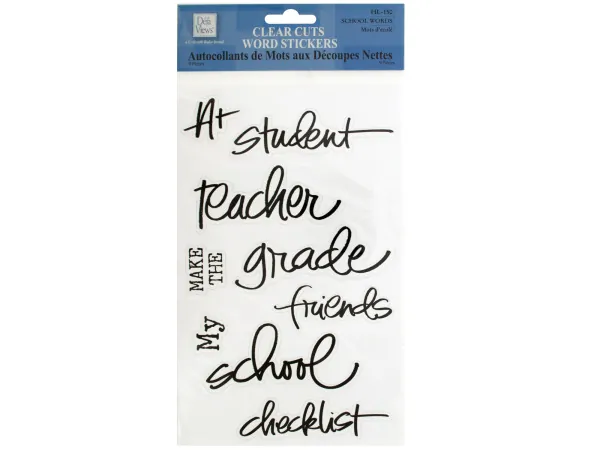 Déjà
Views
CLEAR CUTS
WORD STICKERS
Autocollants de Mots aux Découpes Nettes
SCHOOL WORDS
Mots d'école
A+
student
teacher
MAKE
THE
grade
friends
My
school
checklist